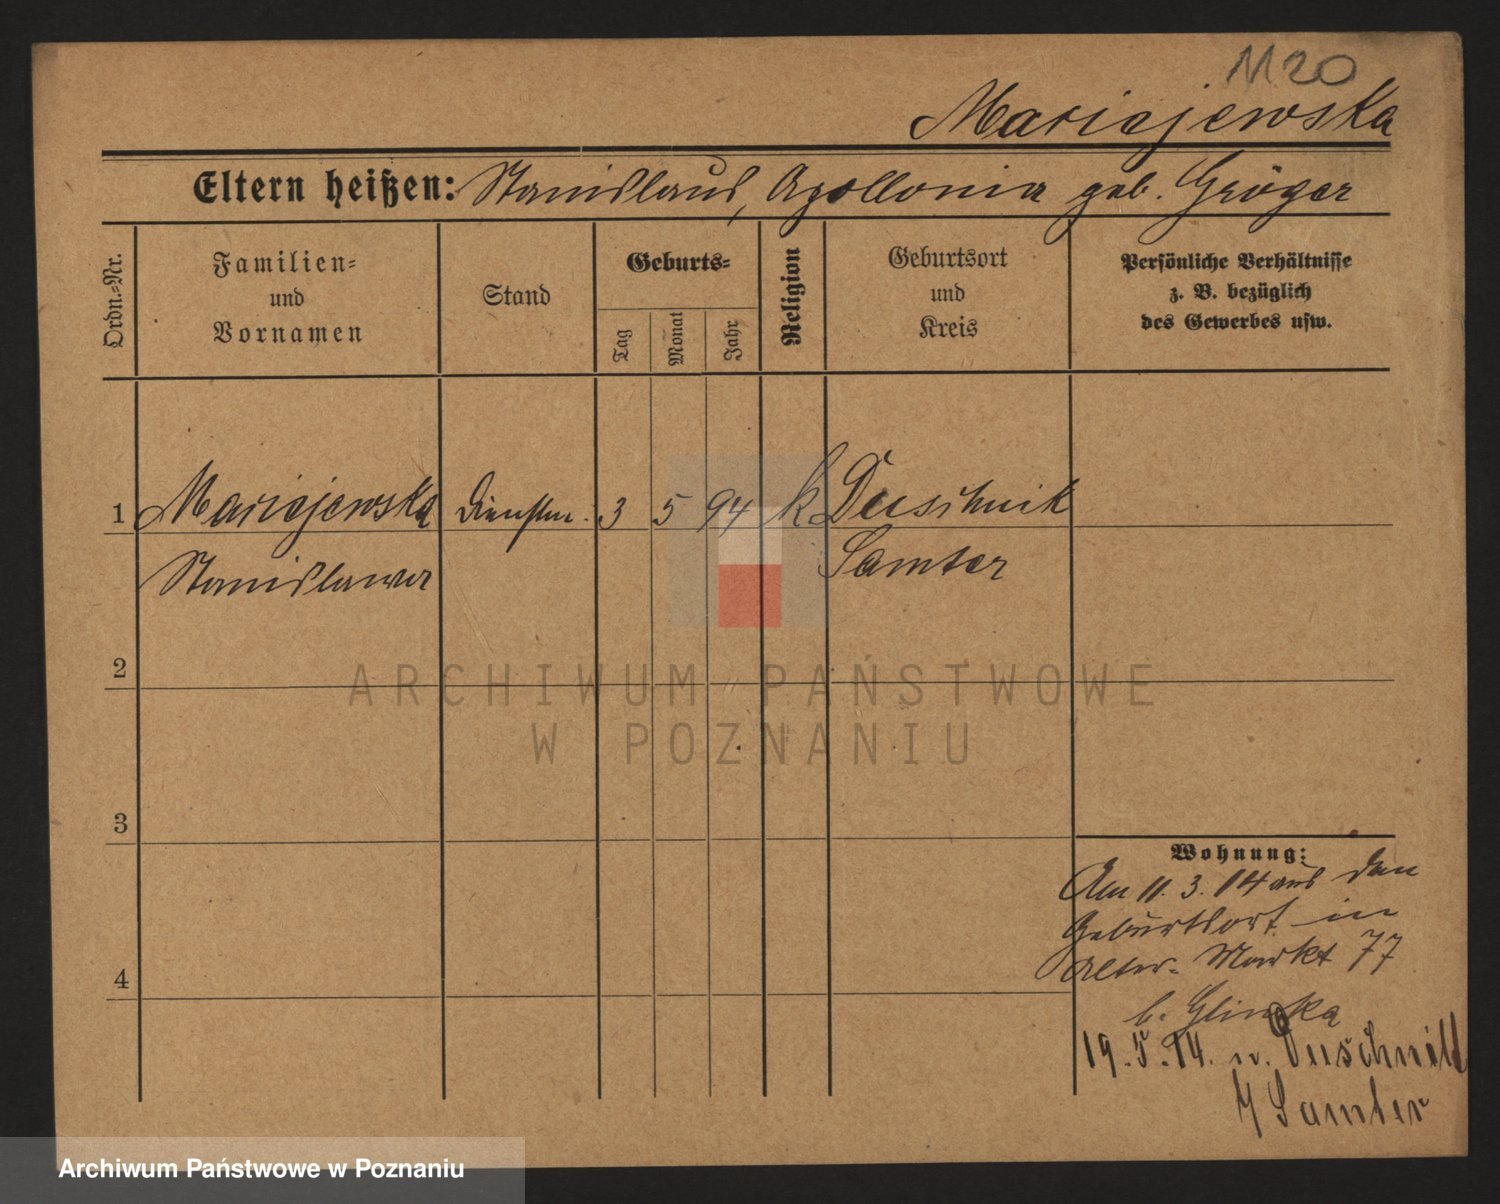 1120
Maricjewska
Eltern heißen: Stanislaus, Apollonia geb. Gröger
Ordn.-Nr.
Familien-
und
Vornamen
Stand
Geburts-
Tag
Monat
Jahr
Religion
Geburtsort
und
Kreis
Persönliche Verhältnisse
z. B. bezüglich
des Gewerbes usw.
1 Maricjewska Dienstm. 3 5 94 k. Duschnik
Stanislawa Samter
2
3
4
Wohnung:
Am 11. 3. 14 aus dem
Geburtsort in
Alter- Markt 77
b. Glinska
19. 5. 14. n. Duschnik
Samter
ARCHIWUM PAŃSTWOWE
W POZNANIU
Archiwum Państwowe w Poznaniu